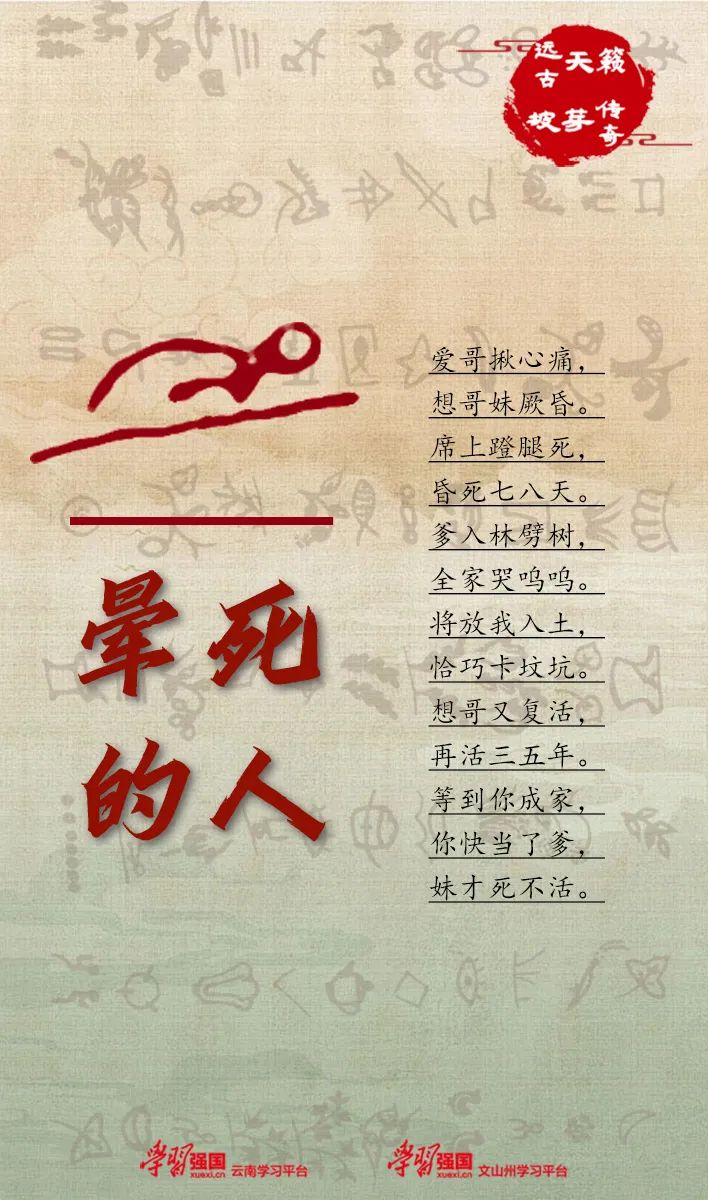 远古天籁
坡芽传奇
爱哥揪心痛，
想哥妹厥昏。
席上蹬腿死，
昏死七八天。
爹入林劈树，
全家哭呜呜。
将放我入土，
恰巧卡坟坑。
想哥又复活，
再活三五年。
等到你成家，
你快当了爹，
妹才死不活。
晕死
的人
学习强国
xuexi.cn
云南学习平台
学习强国
xuexi.cn
文山州学习平台